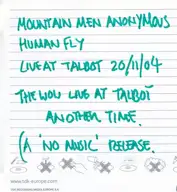 MOUNTAIN MEN ANONYMOUS
HUMAN FLY
LIVE AT TALBOT 20/11/04
THE WOW LIVE AT TALBOT
ANOTHER TIME.
(A 'NO MUSIC' RELEASE.